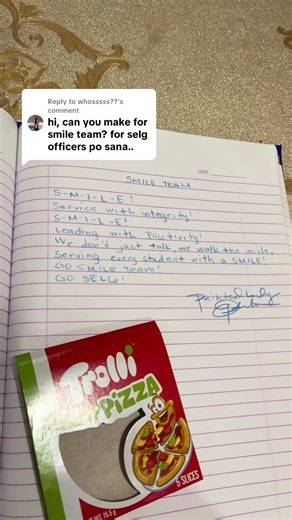 Reply to whosssss??'s
comment
hi, can you make for
smile team? for selg
officers po sana..
DATE
SMILE TEAM
S-M-I-L-E!
Service with integrity!
S-M-I-L-E!
Leading with Positivity!
We don't just talk, we walk the mile,
Serving every student with a SMILE!
GO SMILE TEAM!
GO SELG!
Trolli
PIZZA
5 SLICES
NET WT 15.5 g